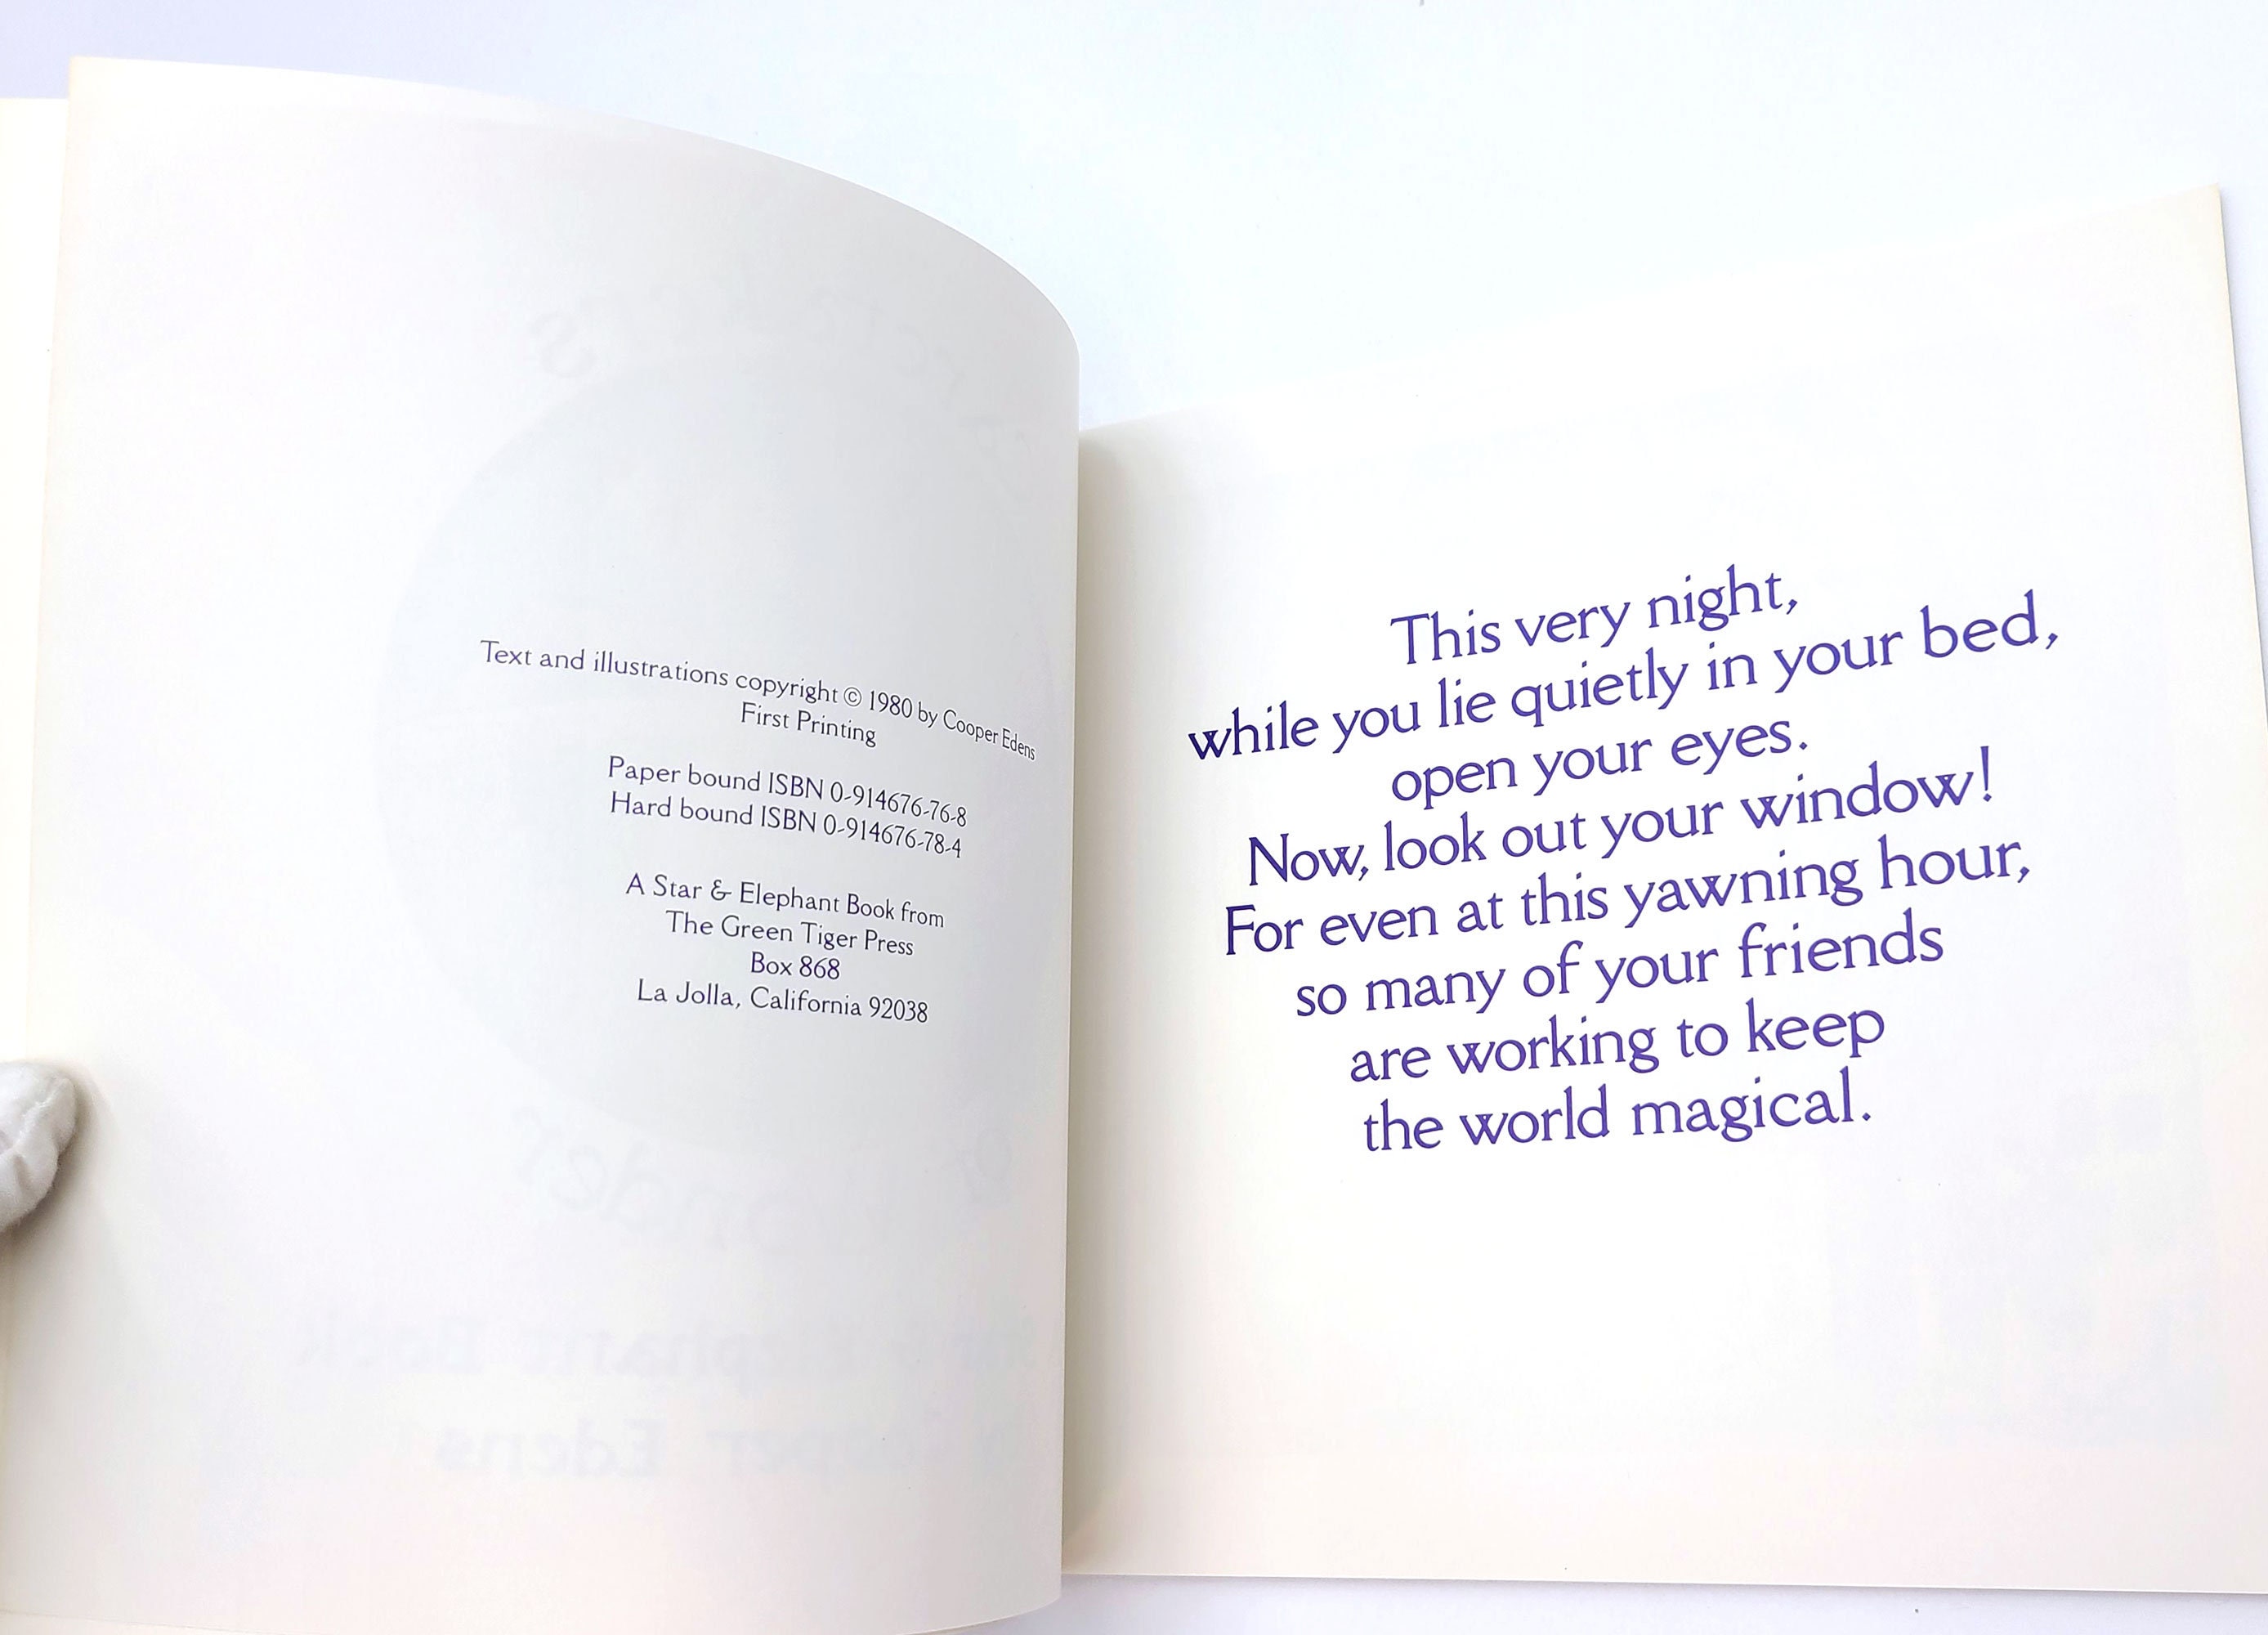 Text and illustrations copyright © 1980 by Cooper Edens
First Printing
Paper bound ISBN 0-914676-76-8
Hard bound ISBN 0-914676-78-4
A Star & Elephant Book from
The Green Tiger Press
Box 868
La Jolla, California 92038
This very night,
while you lie quietly in your bed,
open your eyes.
Now, look out your window!
For even at this yawning hour,
so many of your friends
are working to keep
the world magical.